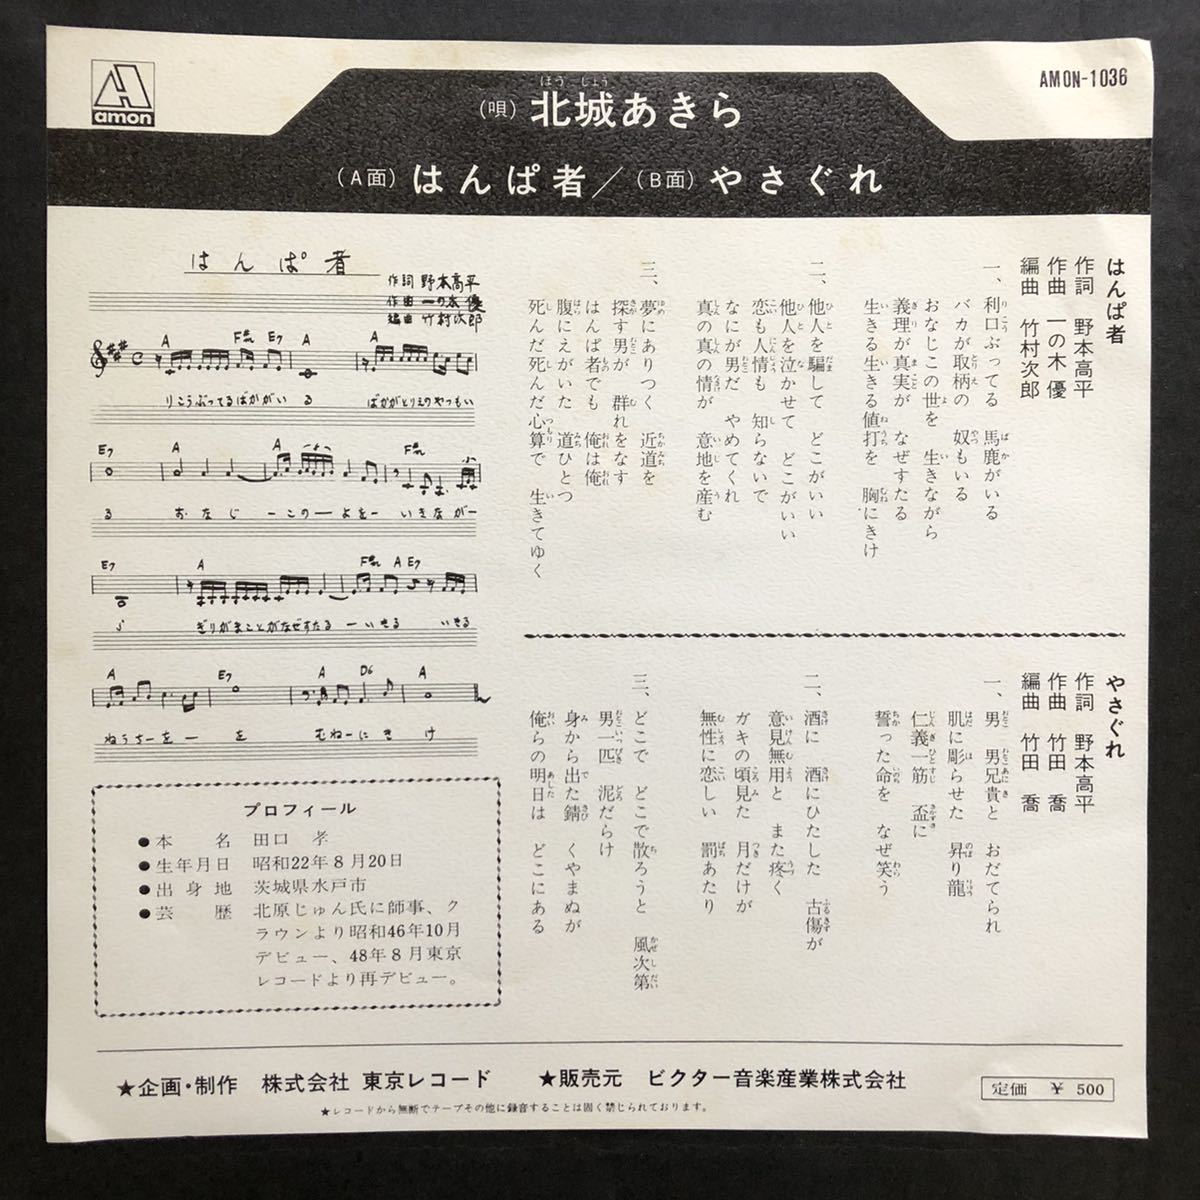 amon
AMON-1036
ほうじょう
(唄) 北城あきら
(A面) はんぱ者/(B面) やさぐれ
はんぱ者
作詞 野本高平
作曲 一の木優
編曲 竹村次郎
A F#m E7 A A
りこうぶってるばかがいる ばかがとりえのやつもい
E7 A A F#m
る おなじーこのーよをーいきながー
E7 A F#m A E7
ら ぎりがまことがなぜすたるーいきる いきる
A E7 A D6 A
ねうちーをーを むねーにきけ
はんぱ者
作詞 野本高平
作曲 一の木 優
編曲 竹村次郎
一、利口ぶってる 馬鹿がいる
バカが取柄の 奴もいる
おなじこの世を 生きながら
義理が真実が なぜすたる
生きる生きる値打を 胸にきけ
二、他人を騙して どこがいい
他人を泣かせて どこがいい
恋も人情も 知らないで
なにが男だ やめてくれ
真の真の情が 意地を産む
三、夢にありつく 近道を
探す男が 群れをなす
はんぱ者でも 俺は俺
腹にえがいた 道ひとつ
死んだ死んだ心算で 生きてゆく
やさぐれ
作詞 野本高平
作曲 竹田 喬
編曲 竹田 喬
一、男 男兄貴と おだてられ
肌に彫らせた 昇り龍
仁義一筋 盃に
誓った命を なぜ笑う
二、酒に 酒にひたした 古傷が
意見無用と また疼く
ガキの頃見た 月だけが
無性に恋しい 罰あたり
三、どこで どこで散ろうと 風次第
男一匹 泥だらけ
身から出た錆 くやまぬが
俺らの明日は どこにある
プロフィール
●本名 田口 孝
●生年月日 昭和22年8月20日
●出身地 茨城県水戸市
●芸歴 北原じゅん氏に師事、ク
ラウンより昭和46年10月
デビュー、48年8月東京
レコードより再デビュー。
★企画・制作 株式会社 東京レコード ★販売元 ビクター音楽産業株式会社
定価 ¥ 500
★レコードから無断でテープその他に録音することは固く禁じられております。